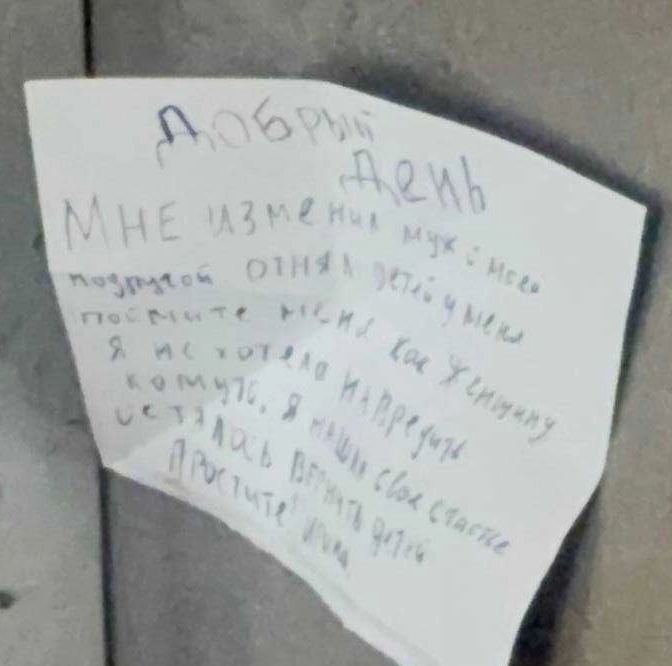 Добрый
День
Мне изменил муж с моей
подругой отнял детей у меня
поймите меня как женщину
я не хотела навредить
комуто, я нашла свое счастье
осталось вернуть детей
Простите